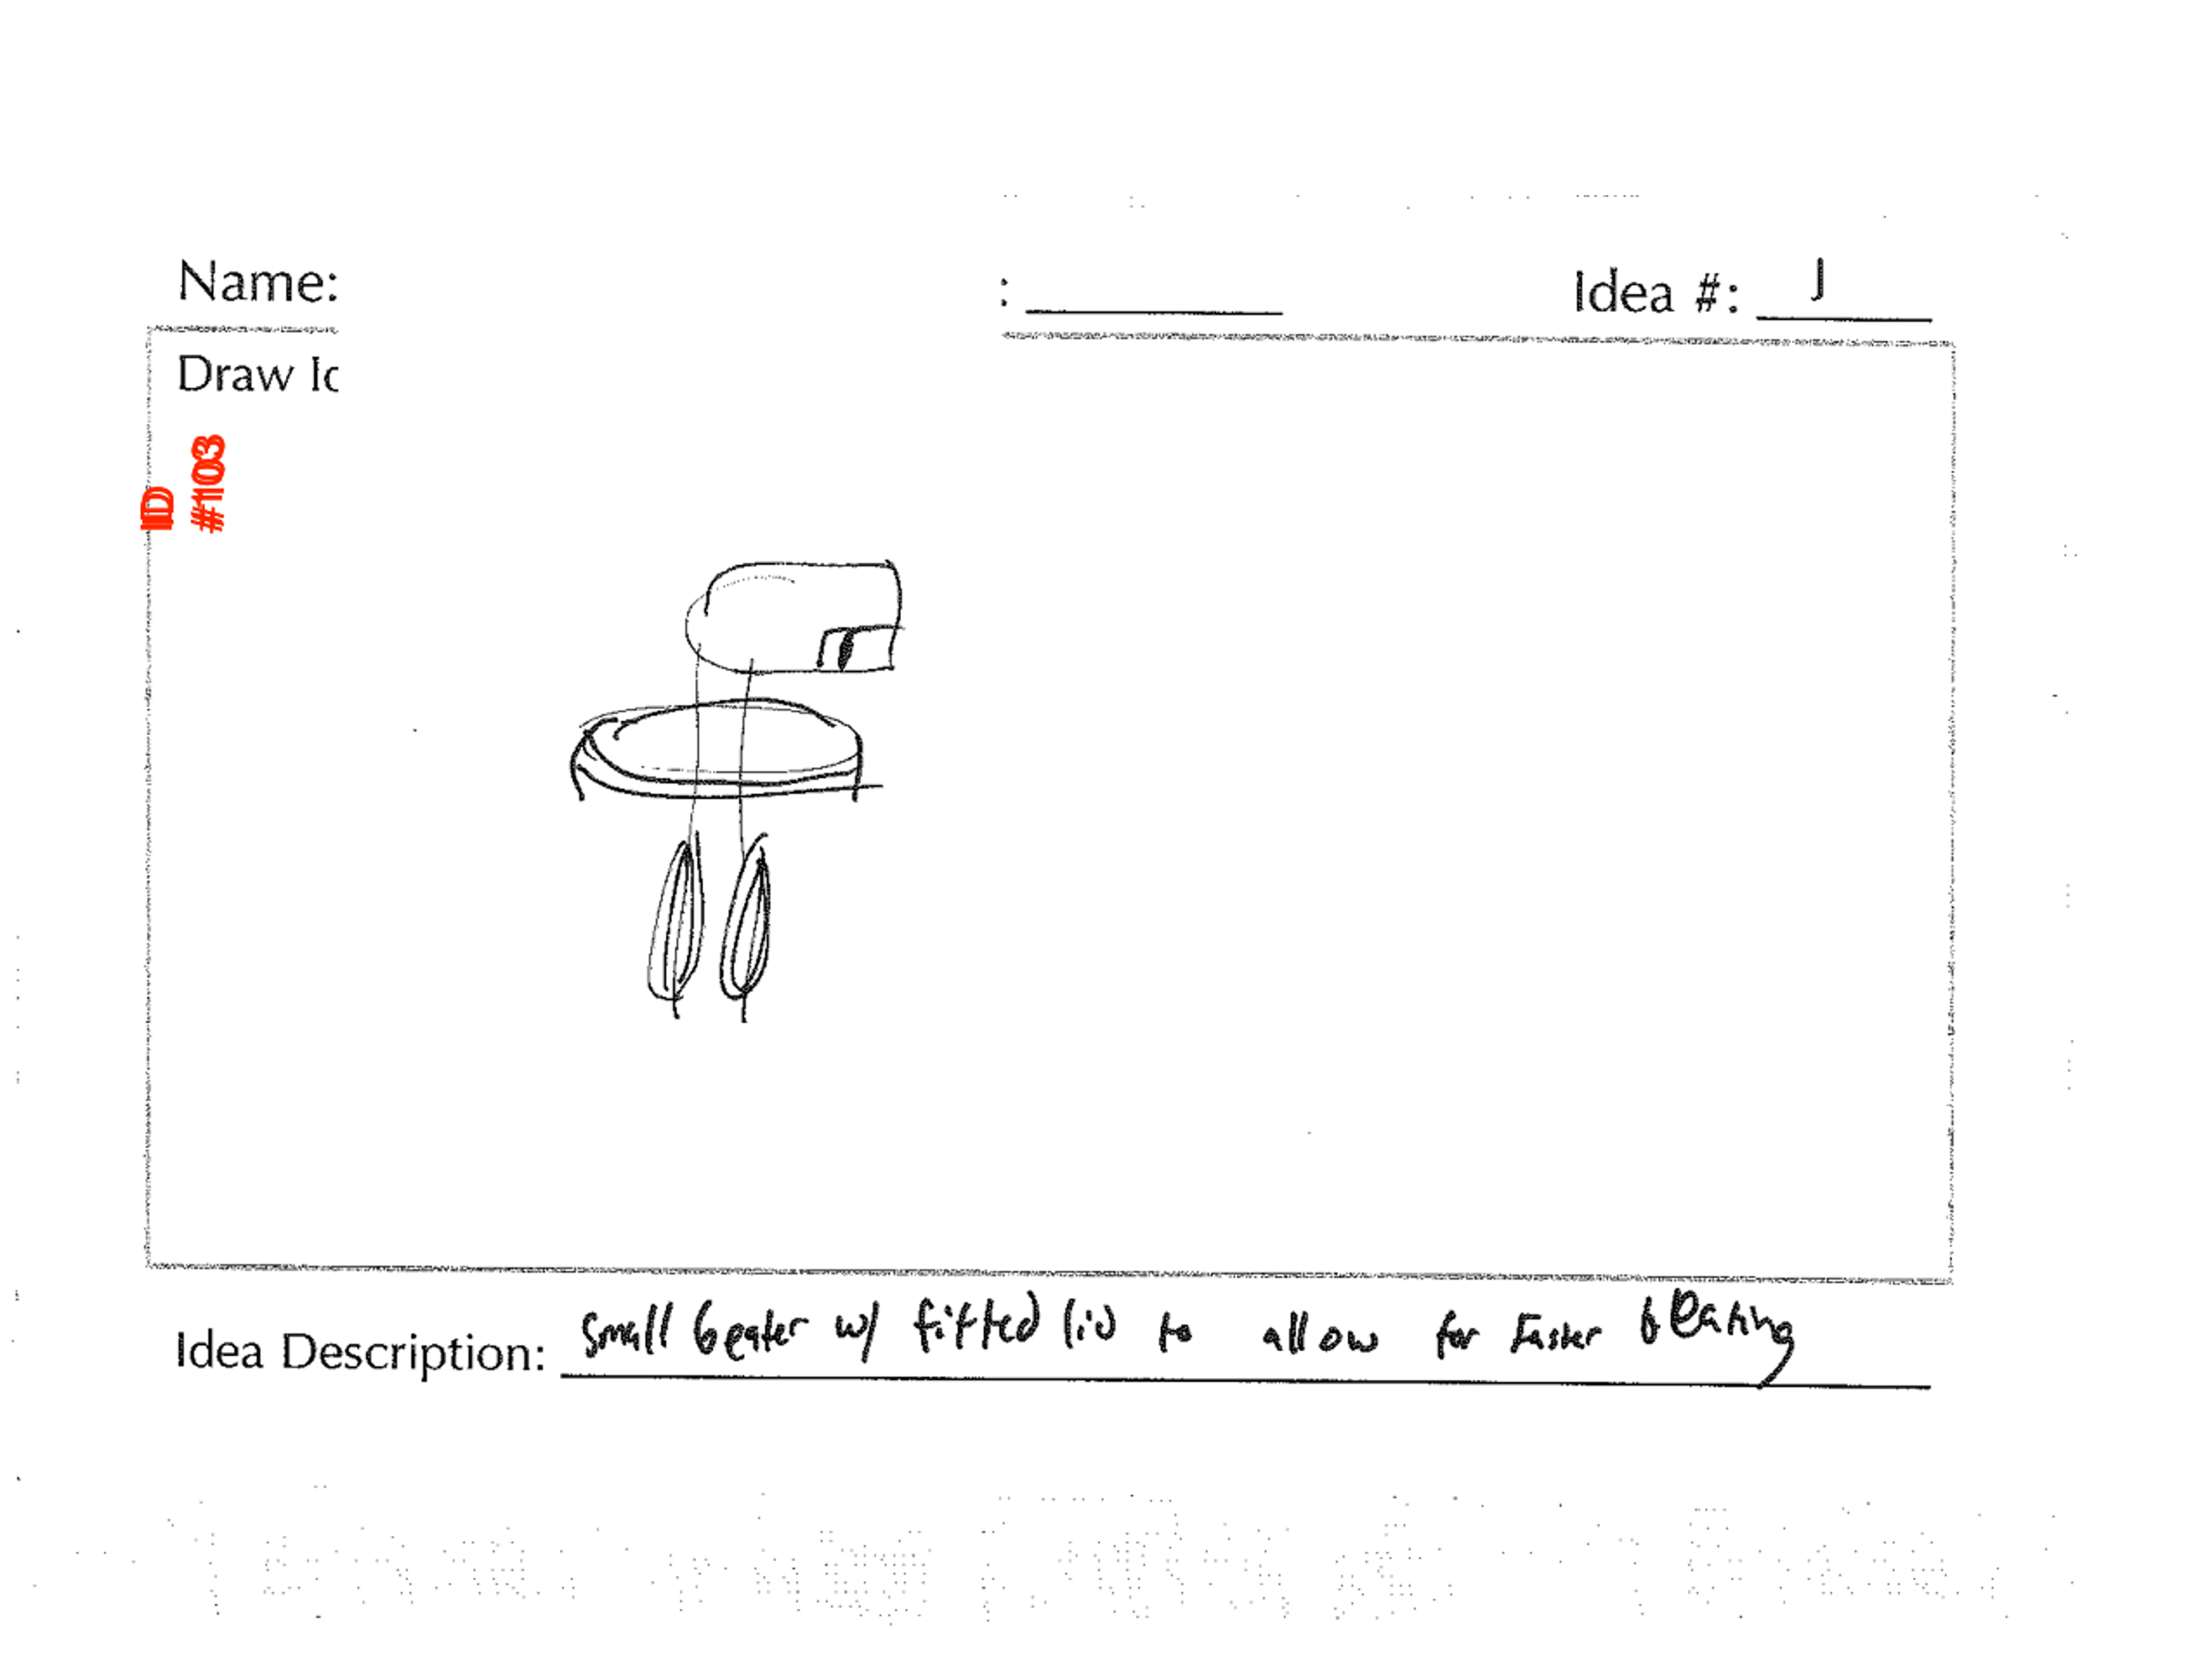 Name:
: Idea #: J
Draw Id
ID
#1103
Idea Description: small beater w/ fitted lid to allow for faster beating